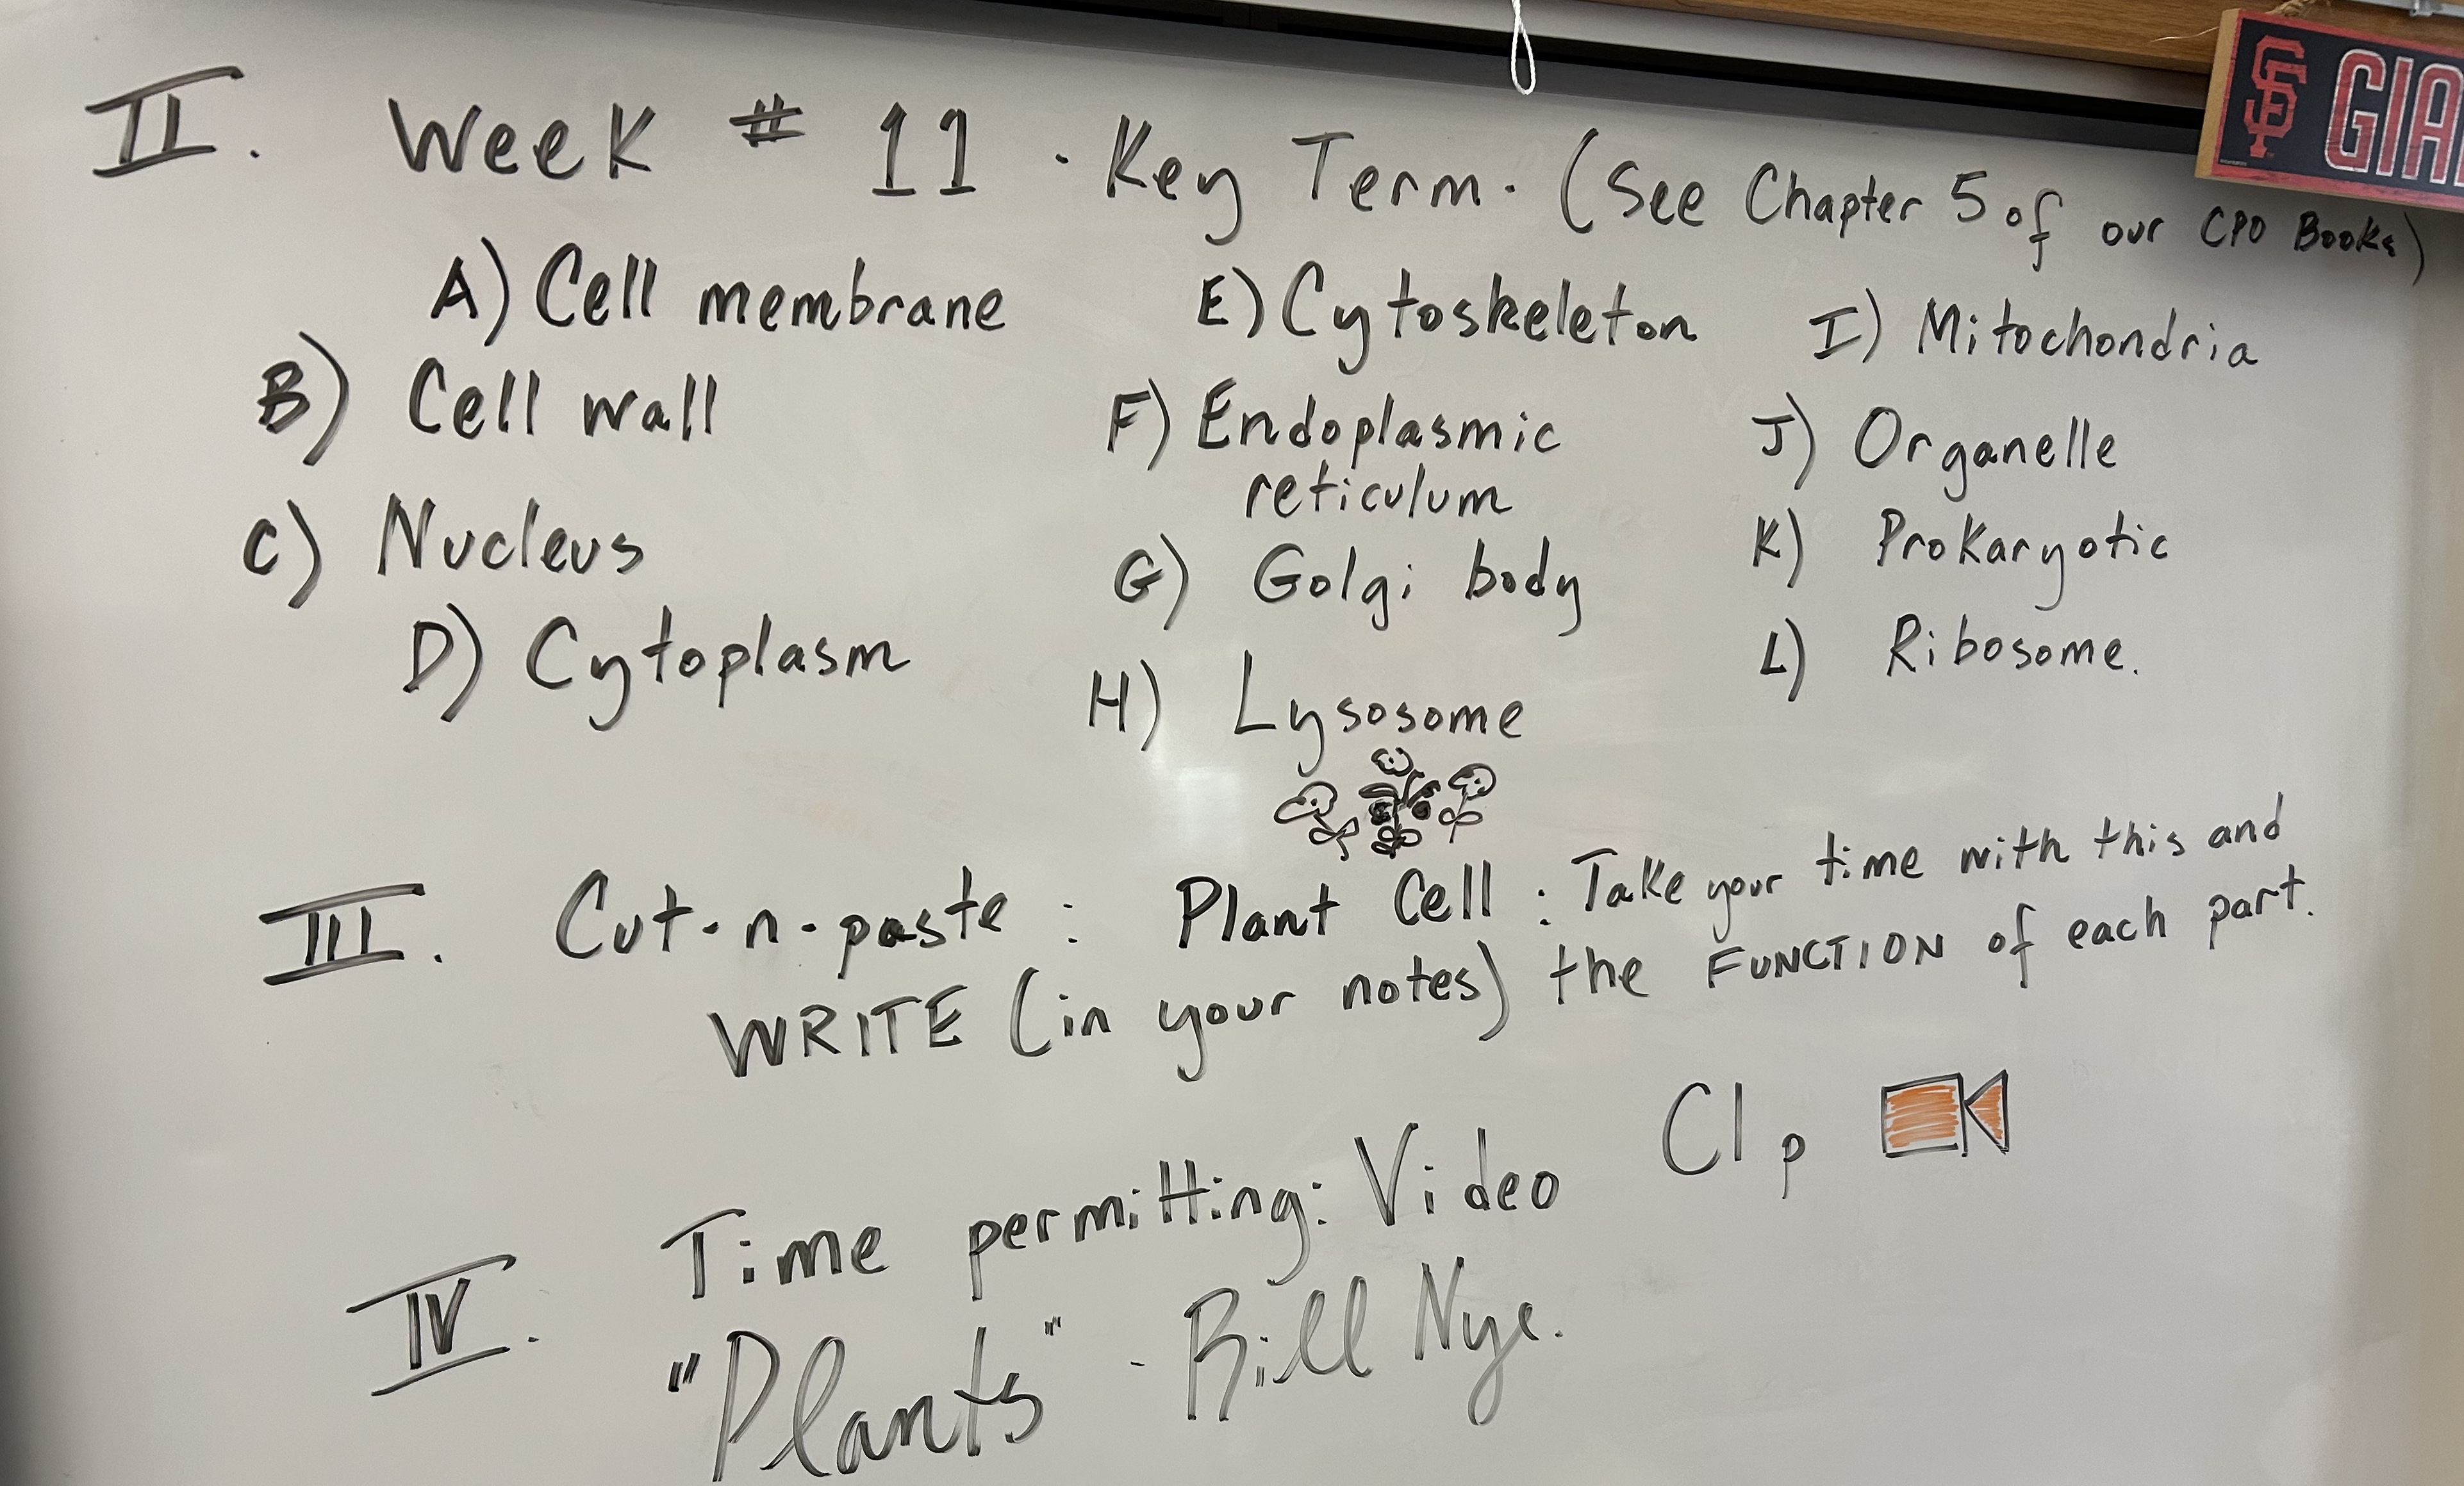 II. Week # 11 · Key Term. (See Chapter 5 of our CPO Books)
A) Cell membrane
B) Cell wall
C) Nucleus
D) Cytoplasm
E) Cytoskeleton
F) Endoplasmic
reticulum
G) Golgi body
H) Lysosome
I) Mitochondria
J) Organelle
K) Prokaryotic
L) Ribosome.
III. Cut-n-paste : Plant Cell : Take your time with this and
WRITE (in your notes) the FUNCTION of each part.
IV. Time permitting: Video Clp
"Plants" - Bill Nye.
SF GIA